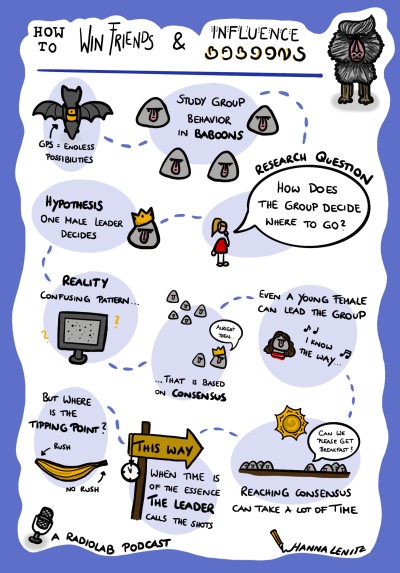 HOW TO WIN FRIENDS & INFLUENCE
BABOONS
GPS = ENDLESS
POSSIBILITIES
STUDY GROUP
BEHAVIOR
IN BABOONS
RESEARCH QUESTION
HOW DOES
THE GROUP DECIDE
WHERE TO GO?
HYPOTHESIS
ONE MALE LEADER
DECIDES
REALITY
CONFUSING PATTERN...
?
?
ALRIGHT
THEN..
...THAT IS BASED
ON CONSENSUS
EVEN A YOUNG FEMALE
CAN LEAD THE GROUP
I KNOW
THE WAY...
BUT WHERE
IS THE
TIPPING POINT?
RUSH
NO RUSH
THIS WAY
WHEN TIME IS
OF THE ESSENCE
THE LEADER
CALLS THE SHOTS
CAN WE
PLEASE GET
BREAKFAST?
REACHING CONSENSUS
CAN TAKE A LOT OF TIME
A RADIOLAB PODCAST
HANNA LENITZ